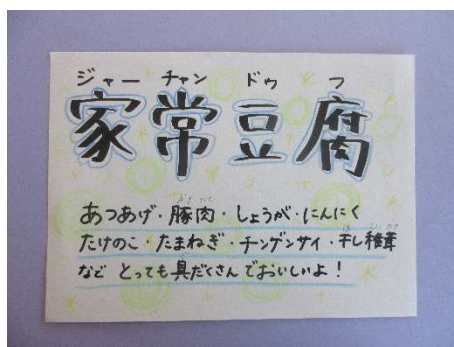 ジャー チャン ドゥ フ
家常豆腐
あつあげ・豚肉・しょうが・にんにく
たけのこ・たまねぎ・チンゲンサイ・干し椎茸
など とっても具だくさんでおいしいよ！